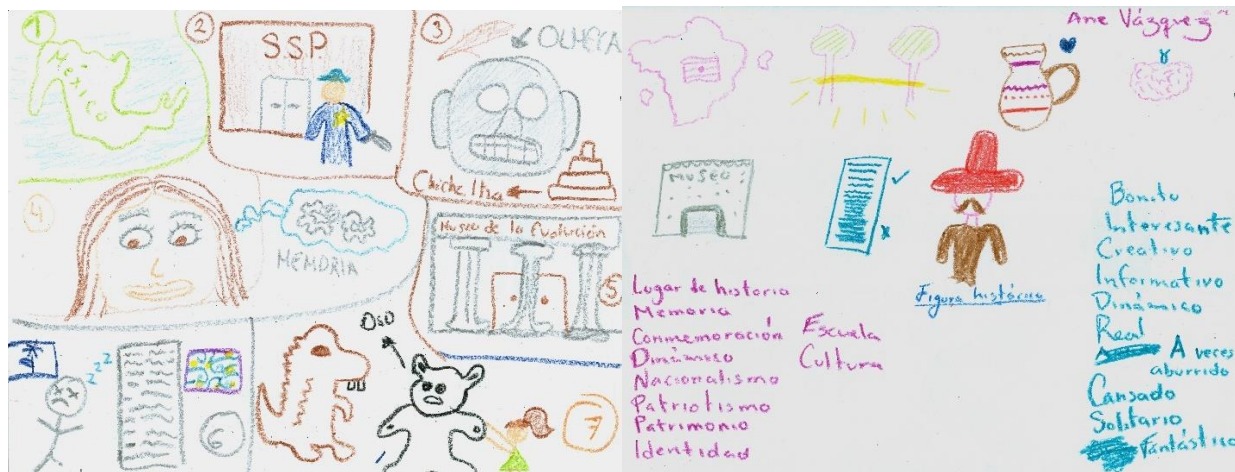 1
México
2
S.S.P.
3
OLMECA
Chiche Itha
4
MEMORIA
Museo de la Evolución
5
zzz
6
Oso
7
Ane Vázquez
MUSEO
Figura histórica
Lugar de historia
Memoria
Conmemoración
Dinámico
Nacionalismo
Patriotismo
Patrimonio
Identidad
Escuela
Cultura
Bonito
Interesante
Creativo
Informativo
Dinámico
Real
A veces
aburrido
Cansado
Solitario
Fantástico